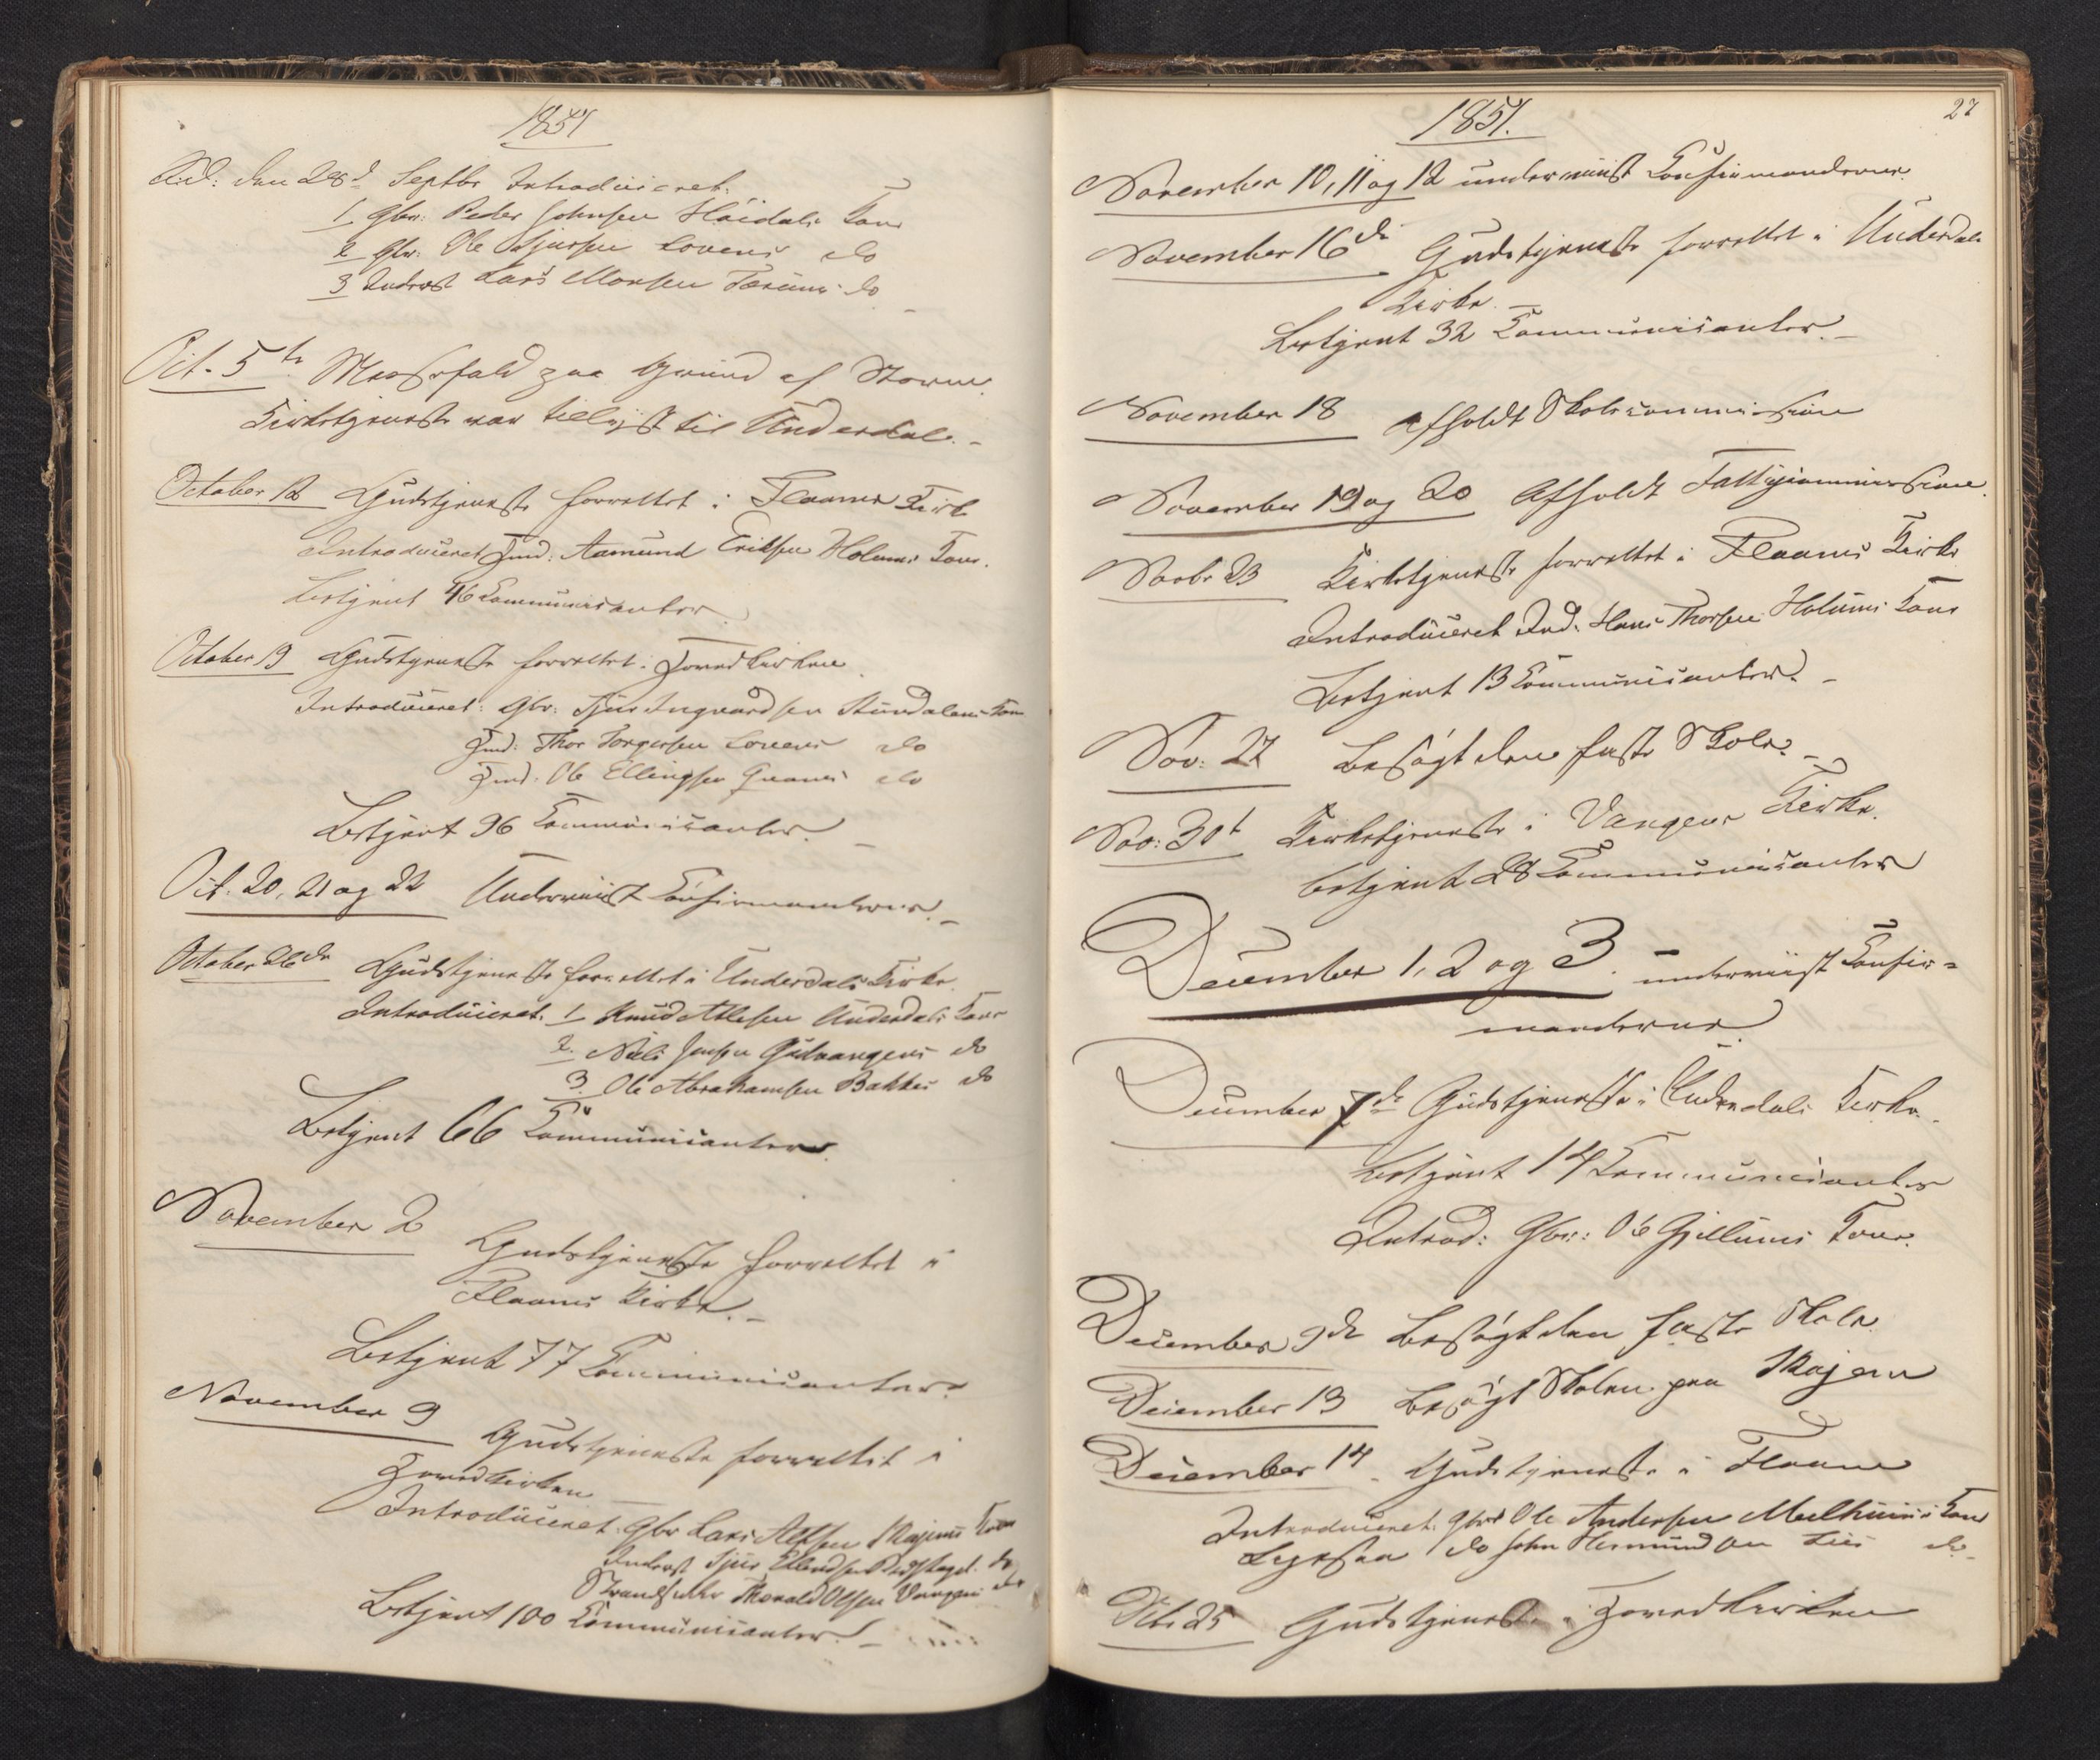 1851
den 28d Septbr Introduceret:
1 Gbr: Peder Johnsen Høidals Kone
2 Gbr: Ole Sjursen Lovens do
3 Inderst Lars Monsen Fœrums do
Oct. 5te Messefald paa Grund af Storm.
Kirketjeneste var tillyst til Underdal. -
October 12 Gudstjeneste forrettet i Flaams Kirke
Introduceret Huusmd: Aamund Eriksen Holums Kone.
Betjent 46 Communicanter
October 19 Gudstjeneste forrettet i Hovedkirken
Introduceret: Gbr: Sjur Ingvardsen Stundalens Kone
Hmd: Thor Torgersen Lovens do
Hmd: Ole Ellingsen do
Betjent 96 Communicanter. -
Oct. 20, 21 og 22 Underviist Confirmanderne. -
October 26de Gudstjeneste forrettet i Underdals Kirke.
Introduceret: 1 Knud Atlesen Underdals Kone
2. Niels Jensen Gudvangens do
3 Ole Abrahamsen Bakkes do
Betjent 66 Communicanter.
November 2 Gudstjeneste forrettet i
Flaams Kirke. -
Betjent 77 Communicanter.
November 9 Gudstjeneste forrettet i
Hovedkirken
Introduceret: Gbr Lars Skajems Kone
Inderst Sjur Ellendsen do
Thorald Olsen Vangen do
Betjent 100 Communicanter. -
27
1851.
November 10, 11 og 12 underviist Confirmanderne.
November 16de Gudstjeneste forrettet i Underdals
Kirke. -
Betjent 32 Communicanter. -
November 18 Afholdt Skolecommission
November 19 og 20 Afholdt Fattigcommission.
Novbr 23 Kirketjeneste forrettet i Flaams Kirke
Introduceret Ind. Hans Thorsen Holums Kone
Betjent 13 Communicanter. -
Nov: 27 Besøgt den faste Skole. -
Nov: 30t Kirketjeneste i Vangens Kirke.
betjent 28 Communicanter
December 1, 2 og 3. underviist Confir=
manderne
December 7de Gudstjeneste i Underdals Kirke.
Betjent 14 Communicanter
Introd: Gbr: Ole Gjellums Kone.
December 9de Besøgt den faste Skole
December 13 Besøgt Skolen paa Skajem
December 14 Gudstjeneste i Flaam
Introduceret: Gbr Ole Andersen Melhuus's Kone
Ligesaa do John Hermundsen Lies do
Decbr 25 Gudstjeneste i Hovedkirken